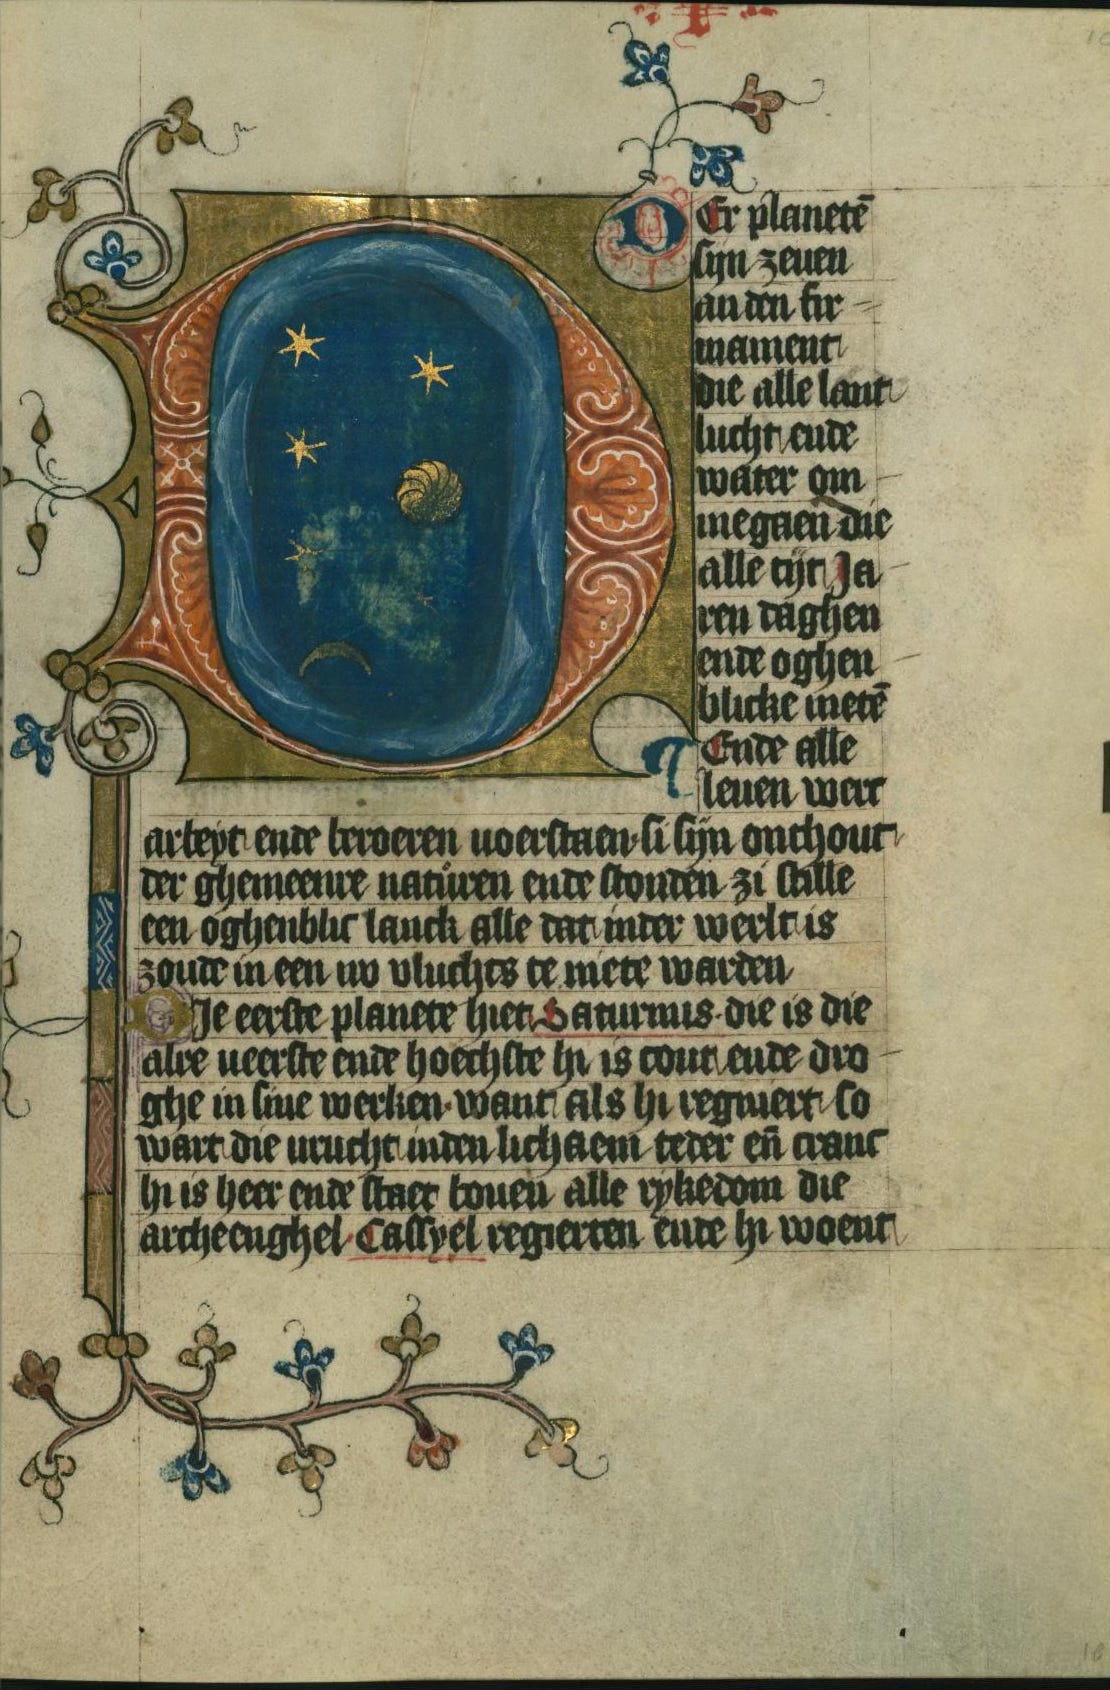 DEr planetē
sijn zeuen
an den fir
mament
die alle lant
lucht ende
water om
megaen die
alle tijt Ja
ren daghen
ende oghen
blicke metē
Ende alle
leuen wert
arbeyt ende beroeren uoerstaen· si sijn onthout
der ghemeenre natüren ende stonden zi stille
een oghenblic lanck alle dat inder werlt is
zoude in een uv vluchts te niete warden
DJe eerste planete hiet Saturnus· die is die
alre ueerste ende hoechste hi is cout ende dro
ghe in sine werken· want als hi regniert so
wart die urucht inden lichaem teder eñ cranc
hi is heer ende staet bouen alle rykedom die
archeenghel Cassyel regierten ende hi woent